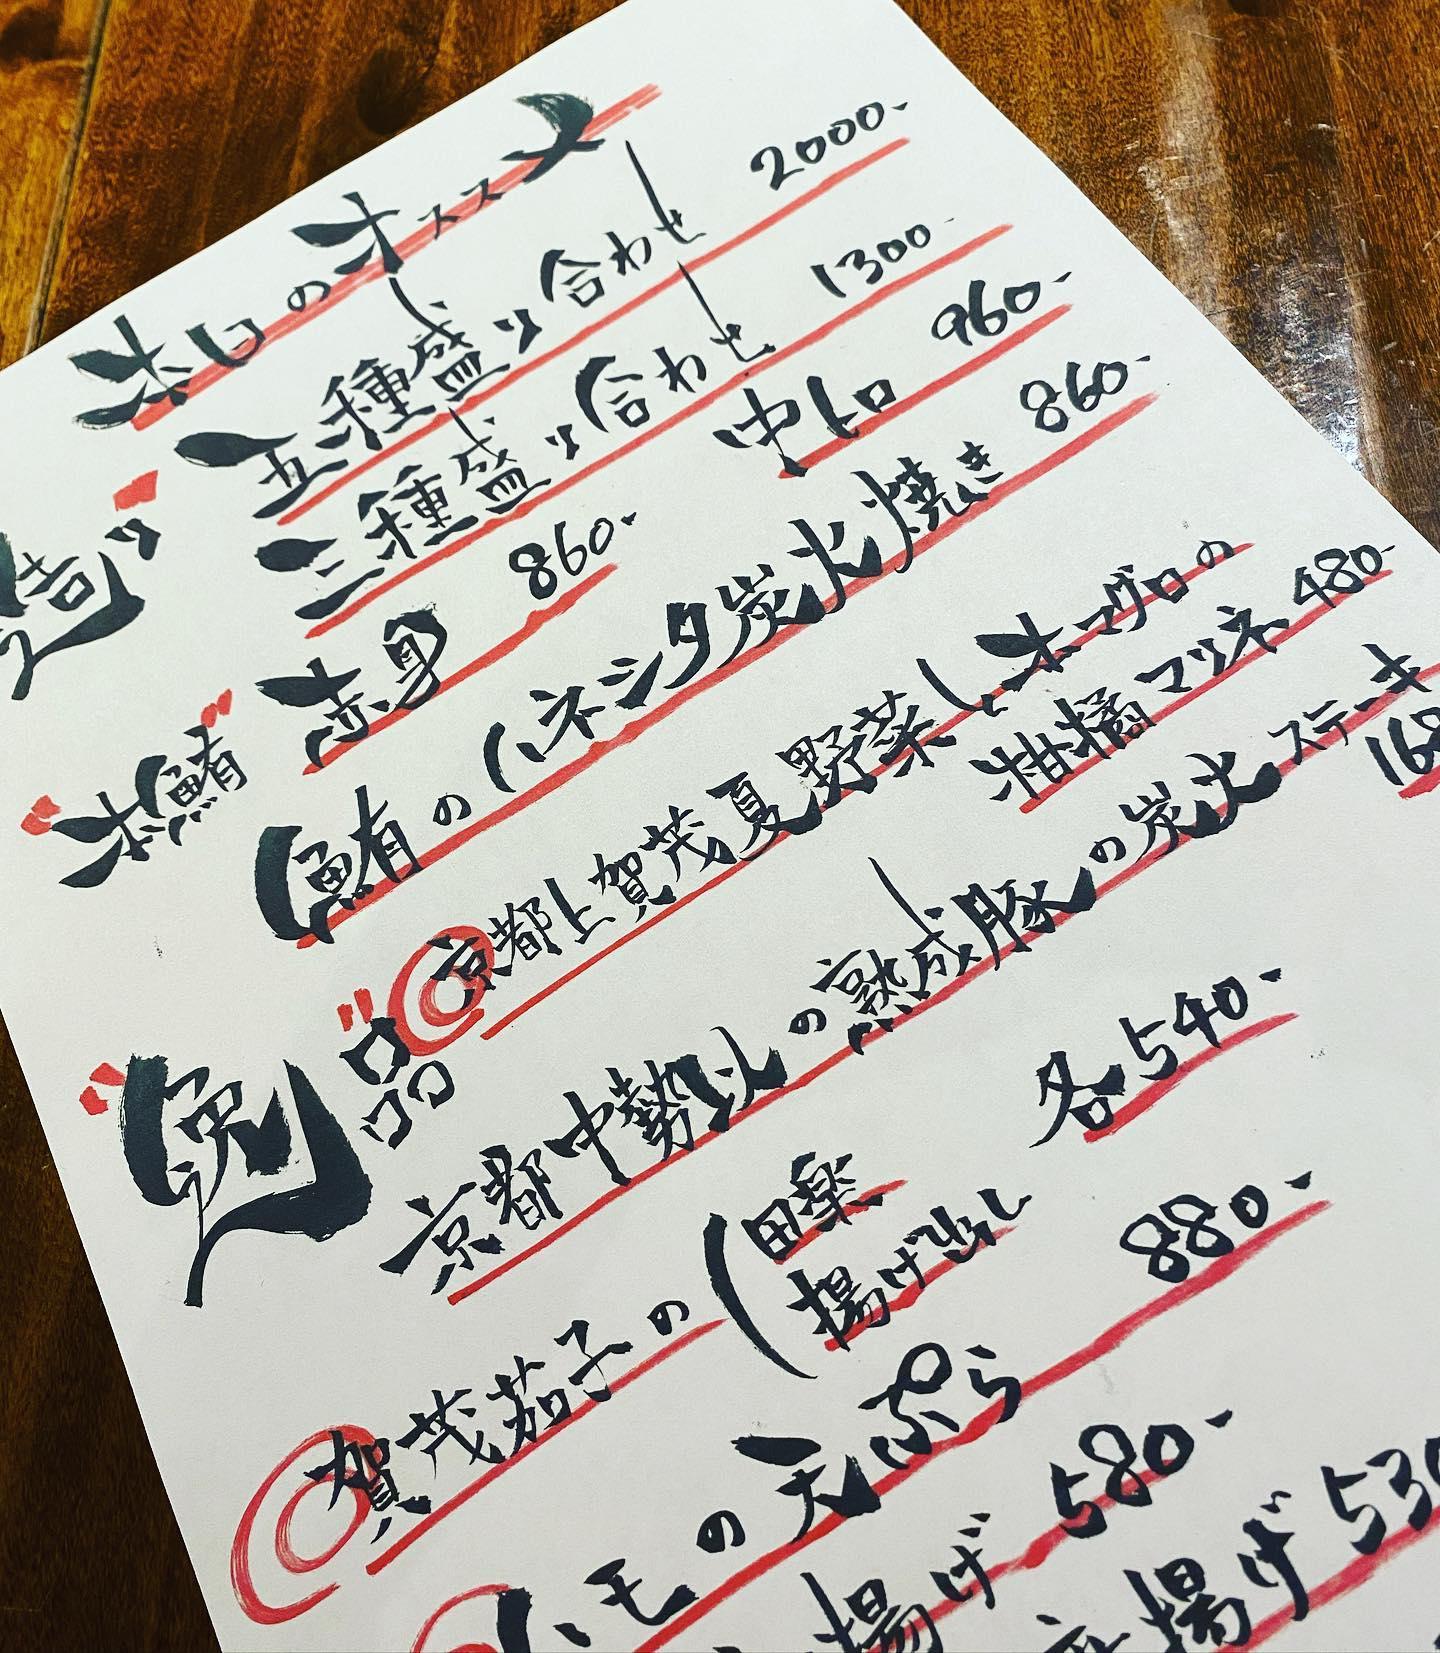 本日のオススメ
造り
五種盛り合わせ 2000-
三種盛り合わせ 1300-
本鮪
赤身 860- 中トロ 960-
鮪のハネシタ炭火焼き 860-
逸品
京都上賀茂夏野菜と本マグロの
柑橘マリネ 480-
京都中勢以の熟成豚の炭火ステーキ
賀茂茄子の 田楽 各540-
揚げ出し
ハモの天ぷら 880-
揚げ 580-
揚げ 530